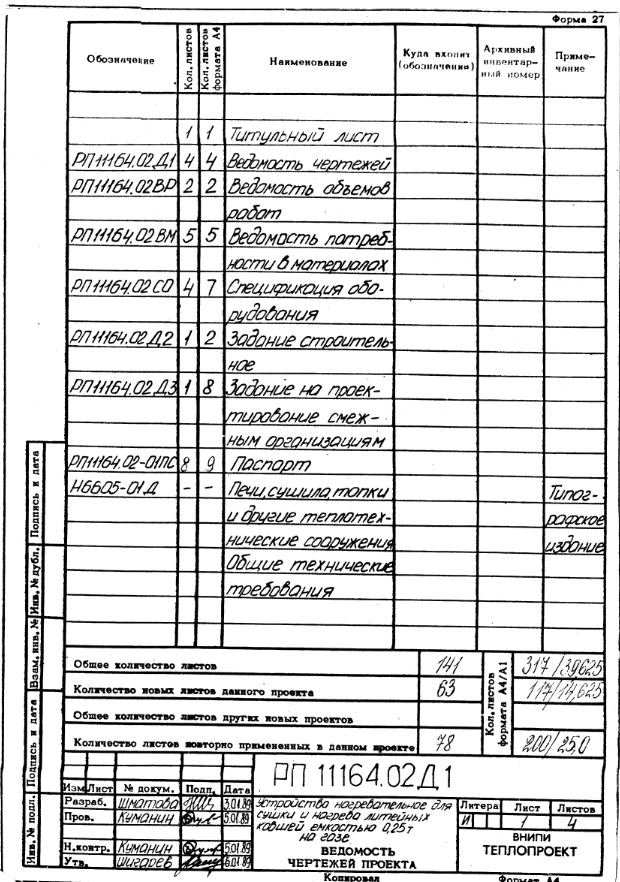 Форма 27
Обозначение
Кол. листов
Кол. листов формата А4
Наименование
Куда входит (обозначение)
Архивный инвентарный номер
Примечание
1 1 Титульный лист
РП11164.02 Д1 4 4 Ведомость чертежей
РП11164.02ВР 2 2 Ведомость объемов
работ
РП11164.02 ВМ 5 5 Ведомость потреб-
ности в материалах
РП11164.02 СО 4 7 Спецификация обо-
рудования
РП11164.02 Д2 1 2 Задание строитель-
ное
РП11164.02 Д3 1 8 Задание на проек-
тирование смеж-
ным организациям
РП11164.02-01ПС 8 9 Паспорт
Н6605-01.Д - - Печи, сушила, топки Типог-
и другие теплотех- рафское
нические сооружения издание
Общие технические
требования
Общее количество листов 141
Количество новых листов данного проекта 63
Общее количество листов других новых проектов
Количество листов повторно примененных в данном проекте 78
Кол. листов формата А4/А1
317/39,625
117/14,625
200/25,0
РП 11164.02Д1
Изм Лист № докум. Подп. Дата
Разраб. Шматова 3.01.89
Пров. Куманин 5.01.89
Н.контр. Куманин 5.01.89
Утв. Шигарев 6.01.89
Устройство нагревательное для
сушки и нагрева литейных
ковшей емкостью 0,25т
на газе
ВЕДОМОСТЬ
ЧЕРТЕЖЕЙ ПРОЕКТА
Литера Лист Листов
И 1 4
ВНИПИ
ТЕПЛОПРОЕКТ
Инв. № подл.
Подпись и дата
Взам. инв. №
Инв. № дубл.
Подпись и дата
Копировал
Формат А4